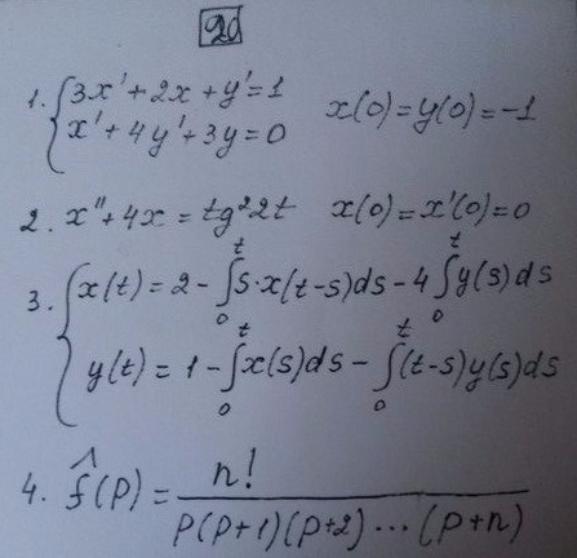 20
1. {3x' + 2x + y' = 1
x' + 4y' + 3y = 0 x(0) = y(0) = -1
2. x'' + 4x = tg²2t x(0) = x'(0) = 0
3. {x(t) = 2 - ∫₀ᵗ s·x(t-s)ds - 4 ∫₀ᵗ y(s)ds
y(t) = 1 - ∫₀ᵗ x(s)ds - ∫₀ᵗ (t-s)y(s)ds
4. f̂(p) = n! / p(p+1)(p+2)...(p+n)